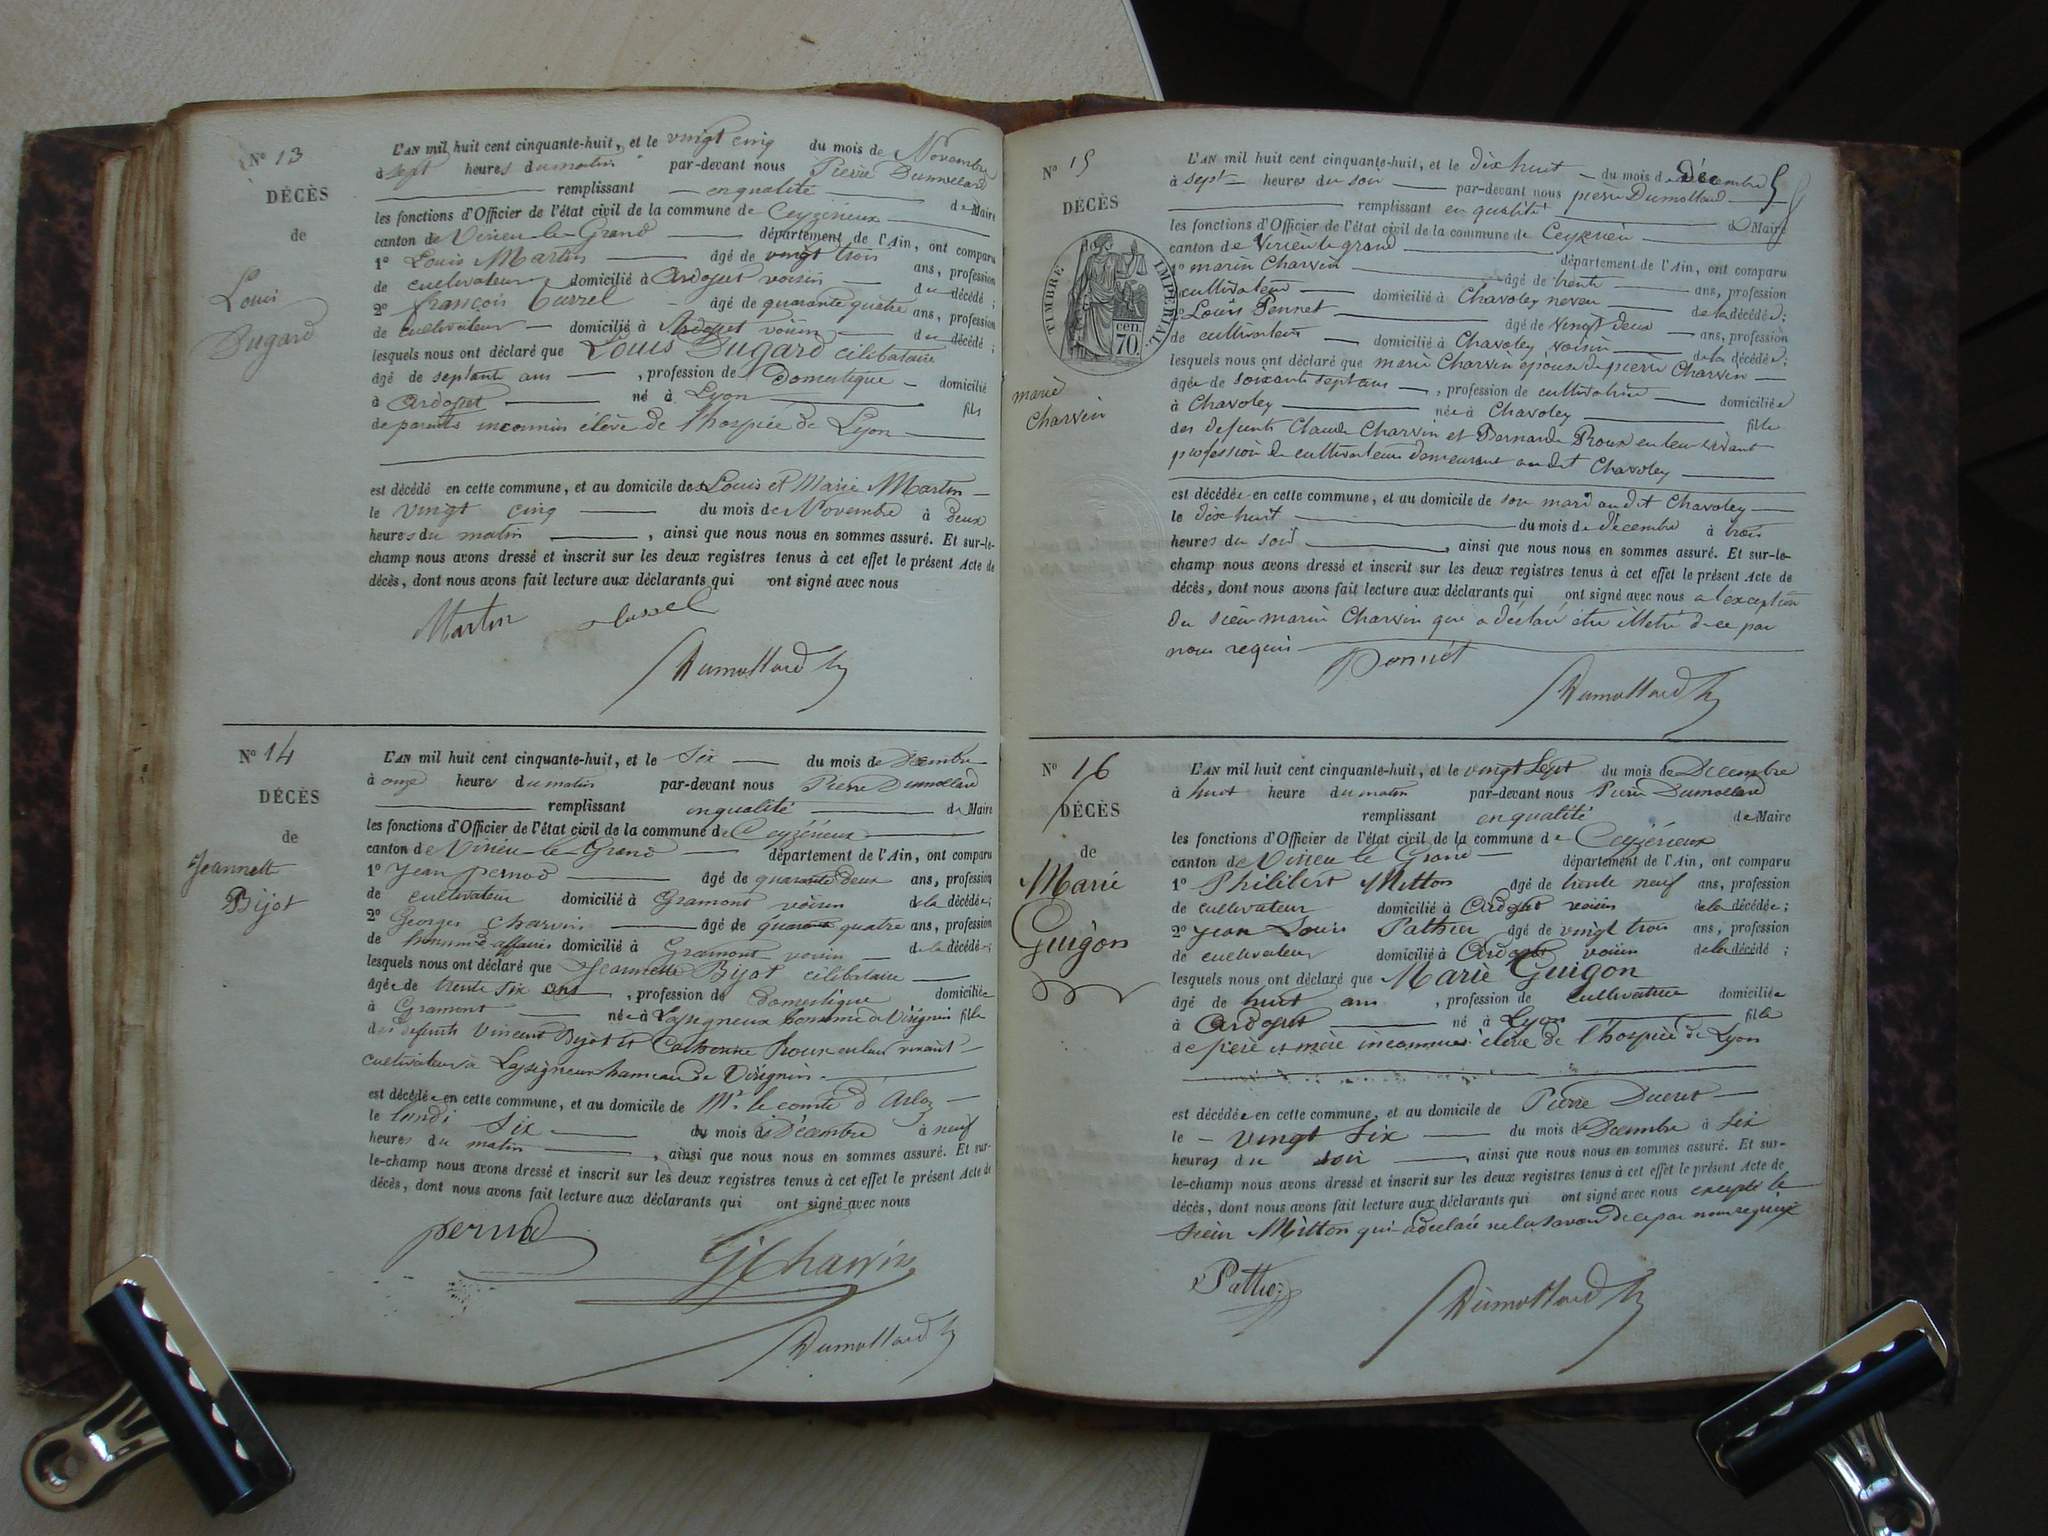 N° 13
DÉCÈS
de
Louis
Dugard
L'AN mil huit cent cinquante-huit, et le vingt cinq du mois de Novembre
à sept heures du matin par-devant nous Pierre Dumollard
remplissant en qualité de Maire
les fonctions d'Officier de l'état civil de la commune de Ceyzérieux
canton de Virieu-le-Grand département de l'Ain, ont comparu
1° Louis Martin âgé de vingt trois ans, profession
de cultivateur domicilié à Ardosset voisin du décédé ;
2° françois âgé de quarante quatre ans, profession
de cultivateur domicilié à Ardosset voisin du décédé ;
lesquels nous ont déclaré que Louis Dugard célibataire
âgé de septante ans , profession de Domestique domicilié
à Ardosset né à Lyon fils
de parents inconnus élève de l'hospice de Lyon
est décédé en cette commune, et au domicile de Louis et Marie Martin
le vingt cinq du mois de Novembre à deux
heures du matin , ainsi que nous nous en sommes assuré. Et sur-le-
champ nous avons dressé et inscrit sur les deux registres tenus à cet effet le présent Acte de
décès, dont nous avons fait lecture aux déclarants qui ont signé avec nous
Martin
Dumollard
N° 14
DÉCÈS
de
Jeannette
Bijot
L'AN mil huit cent cinquante-huit, et le Six du mois de Décembre
à onze heures du matin par-devant nous Pierre Dumollard
remplissant en qualité de Maire
les fonctions d'Officier de l'état civil de la commune de Ceyzérieux
canton de Virieu-le-Grand département de l'Ain, ont comparu
1° Jean pernod âgé de quarante deux ans, profession
de cultivateur domicilié à Gramont voisin de la décédée ;
2° Georges Charvin âgé de quarante quatre ans, profession
de homme d'affaires domicilié à Gramont voisin de la décédée ;
lesquels nous ont déclaré que Jeannette Bijot célibataire
âgée de trente six ans , profession de Domestique domiciliée
à Gramont née à Lassigneux commune de Virignin fille
des défunts Vincent Bijot et Catherine Roux en leur vivant
cultivateur à Lassigneux hameau de Virignin
est décédée en cette commune, et au domicile de Mr. le comte d'Arloz
le lundi Six du mois de Décembre à neuf
heures du matin , ainsi que nous nous en sommes assuré. Et sur-
le-champ nous avons dressé et inscrit sur les deux registres tenus à cet effet le présent Acte de
décès, dont nous avons fait lecture aux déclarants qui ont signé avec nous
pernod
G Charvin
Dumollard
N° 15
DÉCÈS
TIMBRE IMPÉRIAL
70 cen.
marie
Charvin
L'AN mil huit cent cinquante-huit, et le dix huit du mois de décembre
à sept heures du soir par-devant nous pierre Dumollard
remplissant en qualité de Maire
les fonctions d'Officier de l'état civil de la commune de Ceyzérieu
canton de Virieu le grand département de l'Ain, ont comparu
1° marin Charvin âgé de trente ans, profession
cultivateur domicilié à Chavoley neveu de la décédée ;
2° Louis Ponnet âgé de vingt deux ans, profession
de cultivateur domicilié à Chavoley voisin de la décédée ;
lesquels nous ont déclaré que marie Charvin épouse de pierre Charvin
âgée de soixante sept ans , profession de cultivatrice domiciliée
à Chavoley née à Chavoley fille
des defunts Claude Charvin et Bernarde Roux en leur vivant
profession de cultivateurs demeurant au dit Chavoley
est décédée en cette commune, et au domicile de son mari au dit Chavoley
le dix huit du mois de décembre à trois
heures du soir , ainsi que nous nous en sommes assuré. Et sur-le-
champ nous avons dressé et inscrit sur les deux registres tenus à cet effet le présent Acte de
décès, dont nous avons fait lecture aux déclarants qui ont signé avec nous a l'exception
du sieur marin Charvin qui a déclaré être illetré d-ce par
nous requis
Ponnet
Dumollard
N° 16
DÉCÈS
de
Marie
Guigon
L'AN mil huit cent cinquante-huit, et le vingt Sept du mois de Décembre
à huit heure du matin par-devant nous Pierre Dumollard
remplissant en qualité de Maire
les fonctions d'Officier de l'état civil de la commune de Ceyzérieux
canton de Virieu le Grand département de l'Ain, ont comparu
1° Philibert Mitton âgé de trente neuf ans, profession
de cultivateur domicilié à Ardosset voisin de la décédée ;
2° Jean Louis Pathier âgé de vingt trois ans, profession
de cultivateur domicilié à Ardosset voisin de la décédé ;
lesquels nous ont déclaré que Marie Guigon
âgé de huit ans , profession de cultivatrice domiciliée
à Ardosset né à Lyon fille
de père et mère inconnus élève de l'hospice de Lyon
est décédée en cette commune, et au domicile de Pierre Ducret
le vingt Six du mois de Décembre à Six
heures du soir , ainsi que nous nous en sommes assuré. Et sur-
le-champ nous avons dressé et inscrit sur les deux registres tenus à cet effet le présent Acte de
décès, dont nous avons fait lecture aux déclarants qui ont signé avec nous excepté le
sieur Mitton qui a déclaré ne le savoir de ce par nous requis
Dumollard